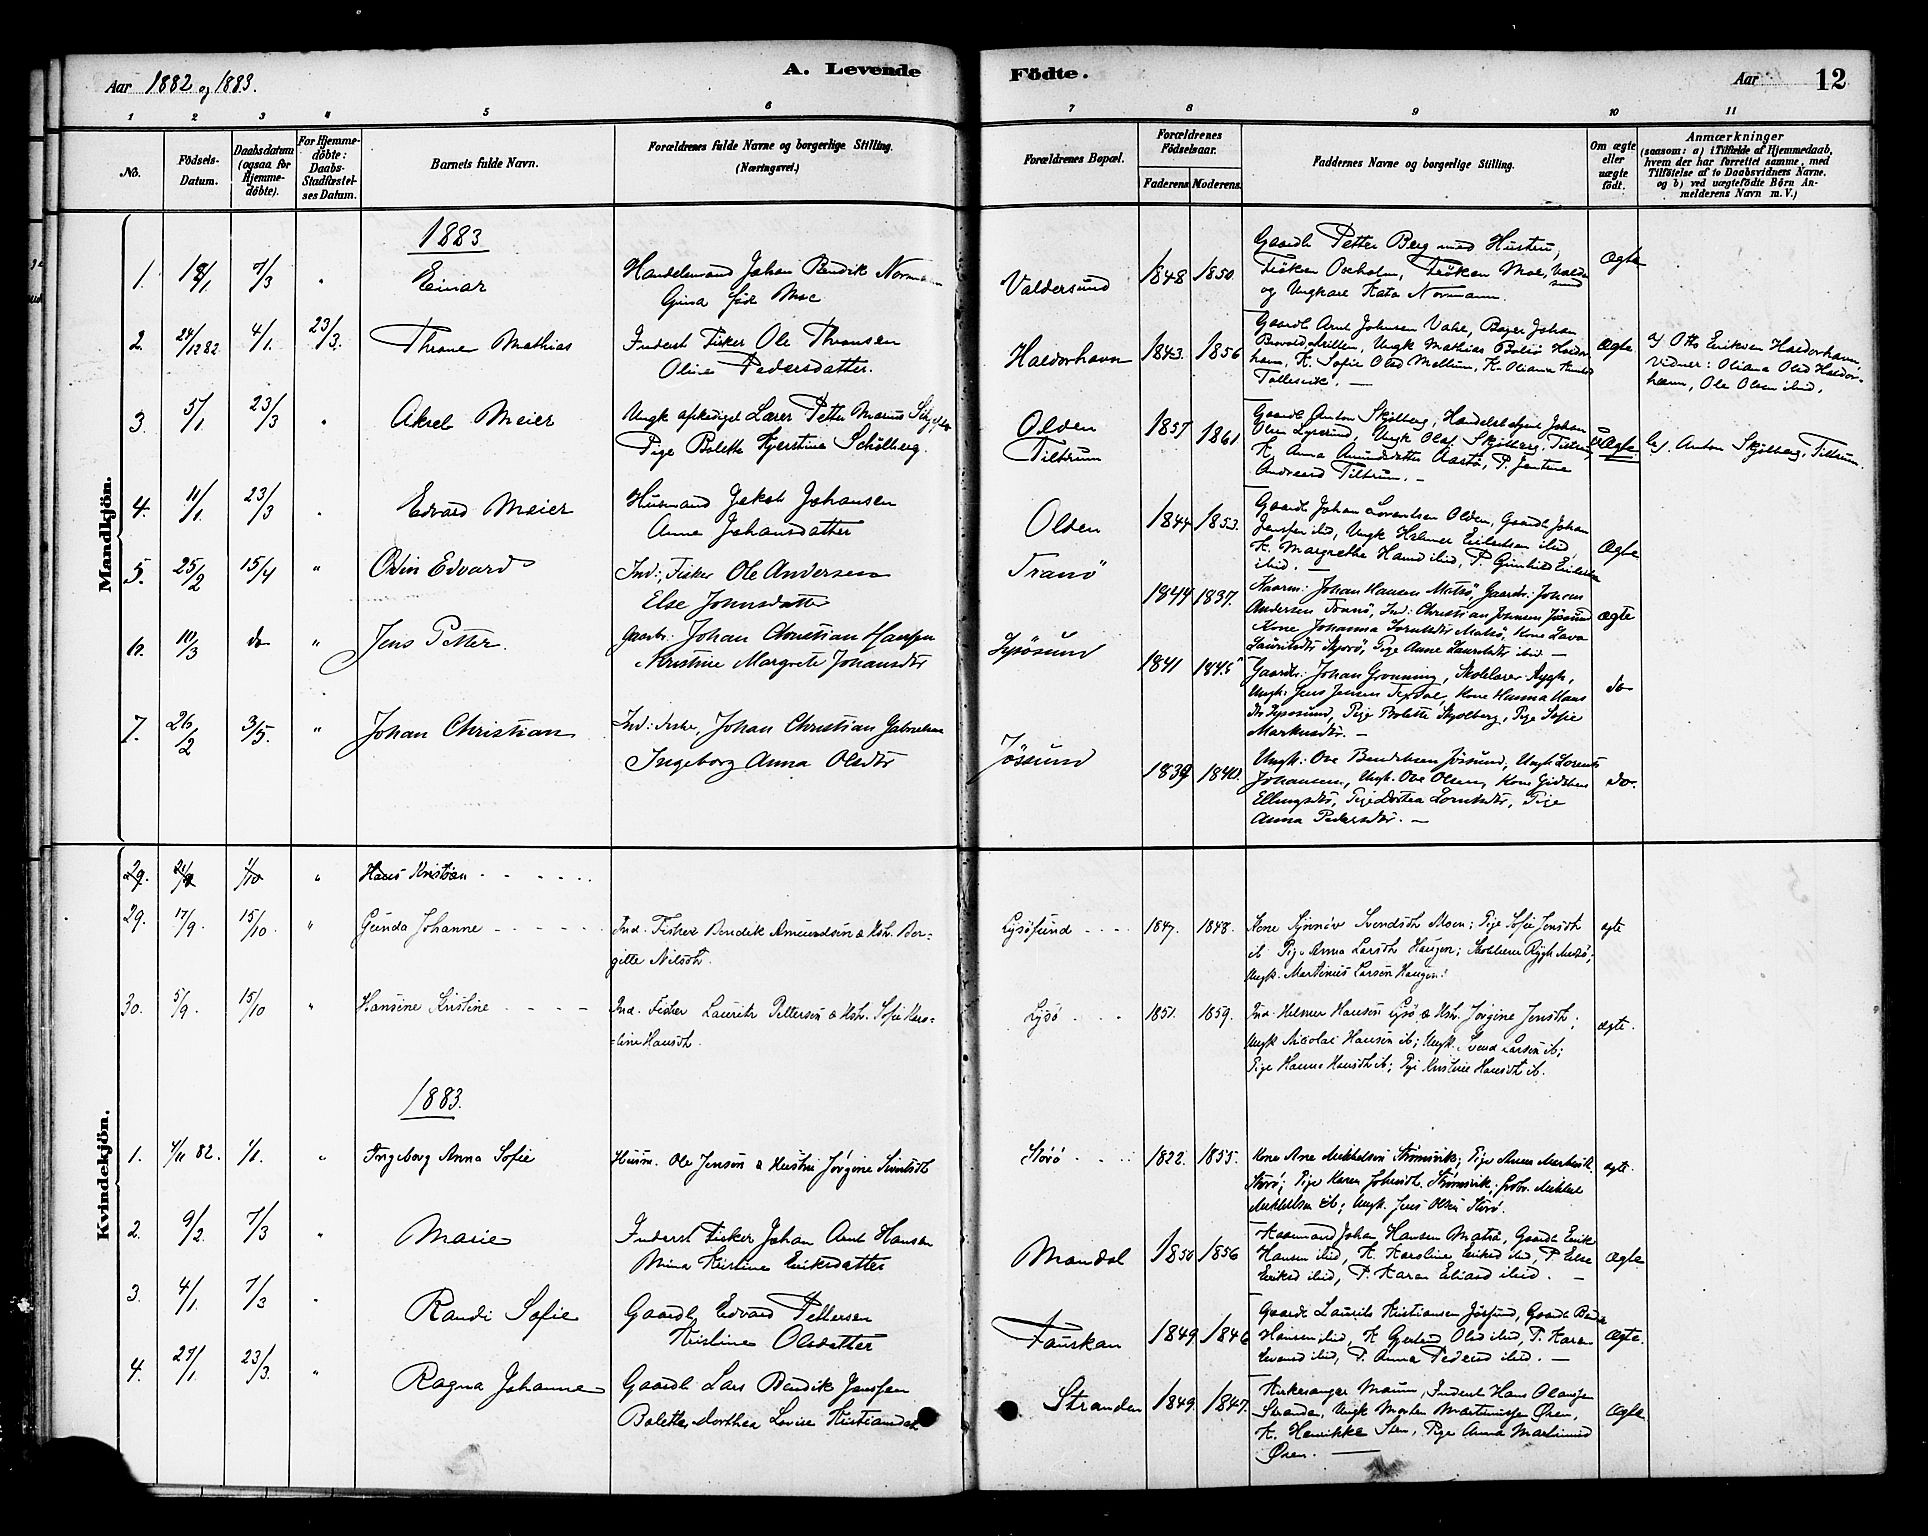 Aar 1882 og 1883.
A. Levende
Födte.
Aar
12
1 2 3 4 5 6 7 8 9 10 11
No.
Födsels-
Datum.
Daabsdatum
(ogsaa for
Hjemme-
döbte).
For Hjemme-
döbte:
Daabs-
Stadfæstel-
ses Datum.
Barnets fulde Navn.
Forældrenes fulde Navne og borgerlige Stilling.
(Næringsvei.)
Forældrenes Bopæl.
Forældrenes
Födselsaar.
Faderens. Moderens.
Faddernes Navne og borgerlige Stilling.
Om ægte
eller
uægte
födt.
Anmærkninger
(saasom: a) i Tilfælde af Hjemmedaab,
hvem der har forrettet samme, med
Tilföielse af to Daabsvidners Navne.
og b) ved uægtefödte Börn An-
melderens Navn m. V.)
Mandkjön.
1883
1. 18/1 7/3 " Einar
Handelsmand Johan Bendik Norman
Gina fød Moe
Valdersund 1848 1850.
Gaardb Petter Berg med Hustru,
Frøken Oxholm, Frøken Moe, Valder
sund
og Ungkarl Normann.
Ægte
2. 24/12 82 4/1. 23/3. Throne Mathias
Inderst Fisker Ole Thronsen
Oline Pedersdatter.
Haldorhavn 1843. 1856
Gaardb Arnt Johnsen Vahl, Johan
Ungk Mathias Haldor
havn, K. Sofie Olsd Meltum, K. Oliana
Tøllesvik. —
Ægte
a) Otto Eriksen Haldorhavn,
Vidner: Oliana Olsd Haldor-
havn, Ole Olsen ibid.
3. 5/1 23/3 " Aksel Meier
Ungk afskediget Lærer Petter Marius
Pige Bolette Kjerstina Schølberg.
Olden
Tiltrum
1857 1861
Gaardb Anton Skjølberg, Johan
Olsen Lysøsund, Ungk Olaf Skjølberg, Tiltrum
K. Anna Amundsdatter Aastø, P. Jentine
Andreasd Tiltrum. —
uÆgte
b) Anton Skjølberg, Tiltrum.
4. 11/1. 23/3 " Edvard Meier
Husmand Jakob Johansen
Anne Johansdatter
Olden 1844 1853.
Gaardb Johan Lorentsen Olden, Gaardb Johan
Jenssen ibid, Ungk Helmer Eilertsen ibid,
K. Margrethe Hansd ibid, P. Gunhild
ibid. —
Ægte
5. 25/2 15/4 " Odin Edvard
Ind: Fisker Ole Andersen
Else Johnsdatter
Tranø
1844 1837.
Kaarm: Johan Hansen Matsø, Gaardr: Johan
Andersen Tranø, Ind: Christian Johnsen Jøssund
Kone Johanna Matsø, Kone Lava
Lauritsdtr, Pige Anne Lauritsdtr ibid. —
ægte
6. 10/3 do " Jens Petter.
Gaardbr. Johan Christian Hanssen
Kristine Margrete Johansdtr
Lysøsund
1841 1845
Gaardbr: Johan Grønning, Skolelærer Rygh,
Ungk: Jens Jensen Teksdal, Kone Hanna Hans
dtr Lysøsund, Pige Bolette Skjølberg, Pige Sofie
Markusdtr. —
do
7. 26/2 3/5. " Johan Christian
Ind: Fisker, Johan Christian Gabrielsen
Ingeborg Anna Olsdtr
Jøssund 1839 1840.
Ungk: Ove Bendiksen Jøssund, Ungk Lorents
Johansen, Ungk. Ove Olsen, Kone
Ellingsdtr, Pige Dortea Lorntsdtr, Pige
Anna Pedersdtr. —
do.
Kvindekjön.
29. 1/10 " Hans Kristian
29. 17/9. 15/10 " Gunda Johanne
Ind. Fisker Bendik Amundsen & Hst. Ber-
gitte Nilsdtr.
Lysøsund 1847. 1848.
Kone Synnøv Svendsdtr Moen; Pige Sofie Jensdtr
ib Pige Anna Larsdtr Haugen; Skolelærer Rygh Matsø;
Ungk. Martinus Larsen Haugen.
ægte
30. 5/9. 15/10 " Hansine Kristine
Ind. Fisker Lauritz Pettersen & Hst. Sofie Karo-
line Hansdtr.
Lysø 1851. 1859.
Ind. Helmer Hansen Lysø & Hst. Jørgine Jensdtr;
Ungk Nicolai Hansen ib; Ungk. Svend Larsen ib;
Pige Hanna Hansdtr ib; Pige Kristine Hansdtr ib.
ægte.
1883.
1. 4/11 82. 1/1. " Ingeborg Anna Sofie
Husm. Ole Jensen & Hustru Jørgine
Storø 1822. 1855.
Kone Ane Mikkelsen Strømsvik; Pige Anna
Storø; Pige Karen Johnsdt. Strømsvik; Gdbr. Mikkel
Mikkelsen ib; Ungk. Jens Olsen Storø.
ægte
2. 9/2. 7/3 " Marie
Inderst Fisker Johan Arnt Hansen
Mina Kristine Eriksdatter
Mandal 1850 1856
Kaarmand Johan Hansen Matsø, Gaardb Erik
Hansen ibid, K. Karoline Eriksd ibid, P. Else
Eriksd ibid, P. Karen Eliasd ibid. —
Ægte
3. 4/1. 7/3 " Randi Sofie
Gaardb Edvard Pettersen
Kristine Olsdatter
Fauskan 1849 1846
Gaardb Laurits Kristiansen Jøssund, Gaardb
Hansen ibid, K Gjertrud Olsd ibid, P. Karen
ibid, P. Anna Pedersd ibid. —
Ægte.
4. 27/1 23/3. " Ragna Johanne
Gaardb Lars Bendik Jenssen
Bolette Dorthea Lovise Kristiansd
Stranden 1849. 1847.
Kirkesanger Maum, Inderst Hans Olaussen
Stranda, Ungk Morten Martinussen Øren,
K. Henrikke Sten, Pige Anna Martinusd
Øren. —
Ægte